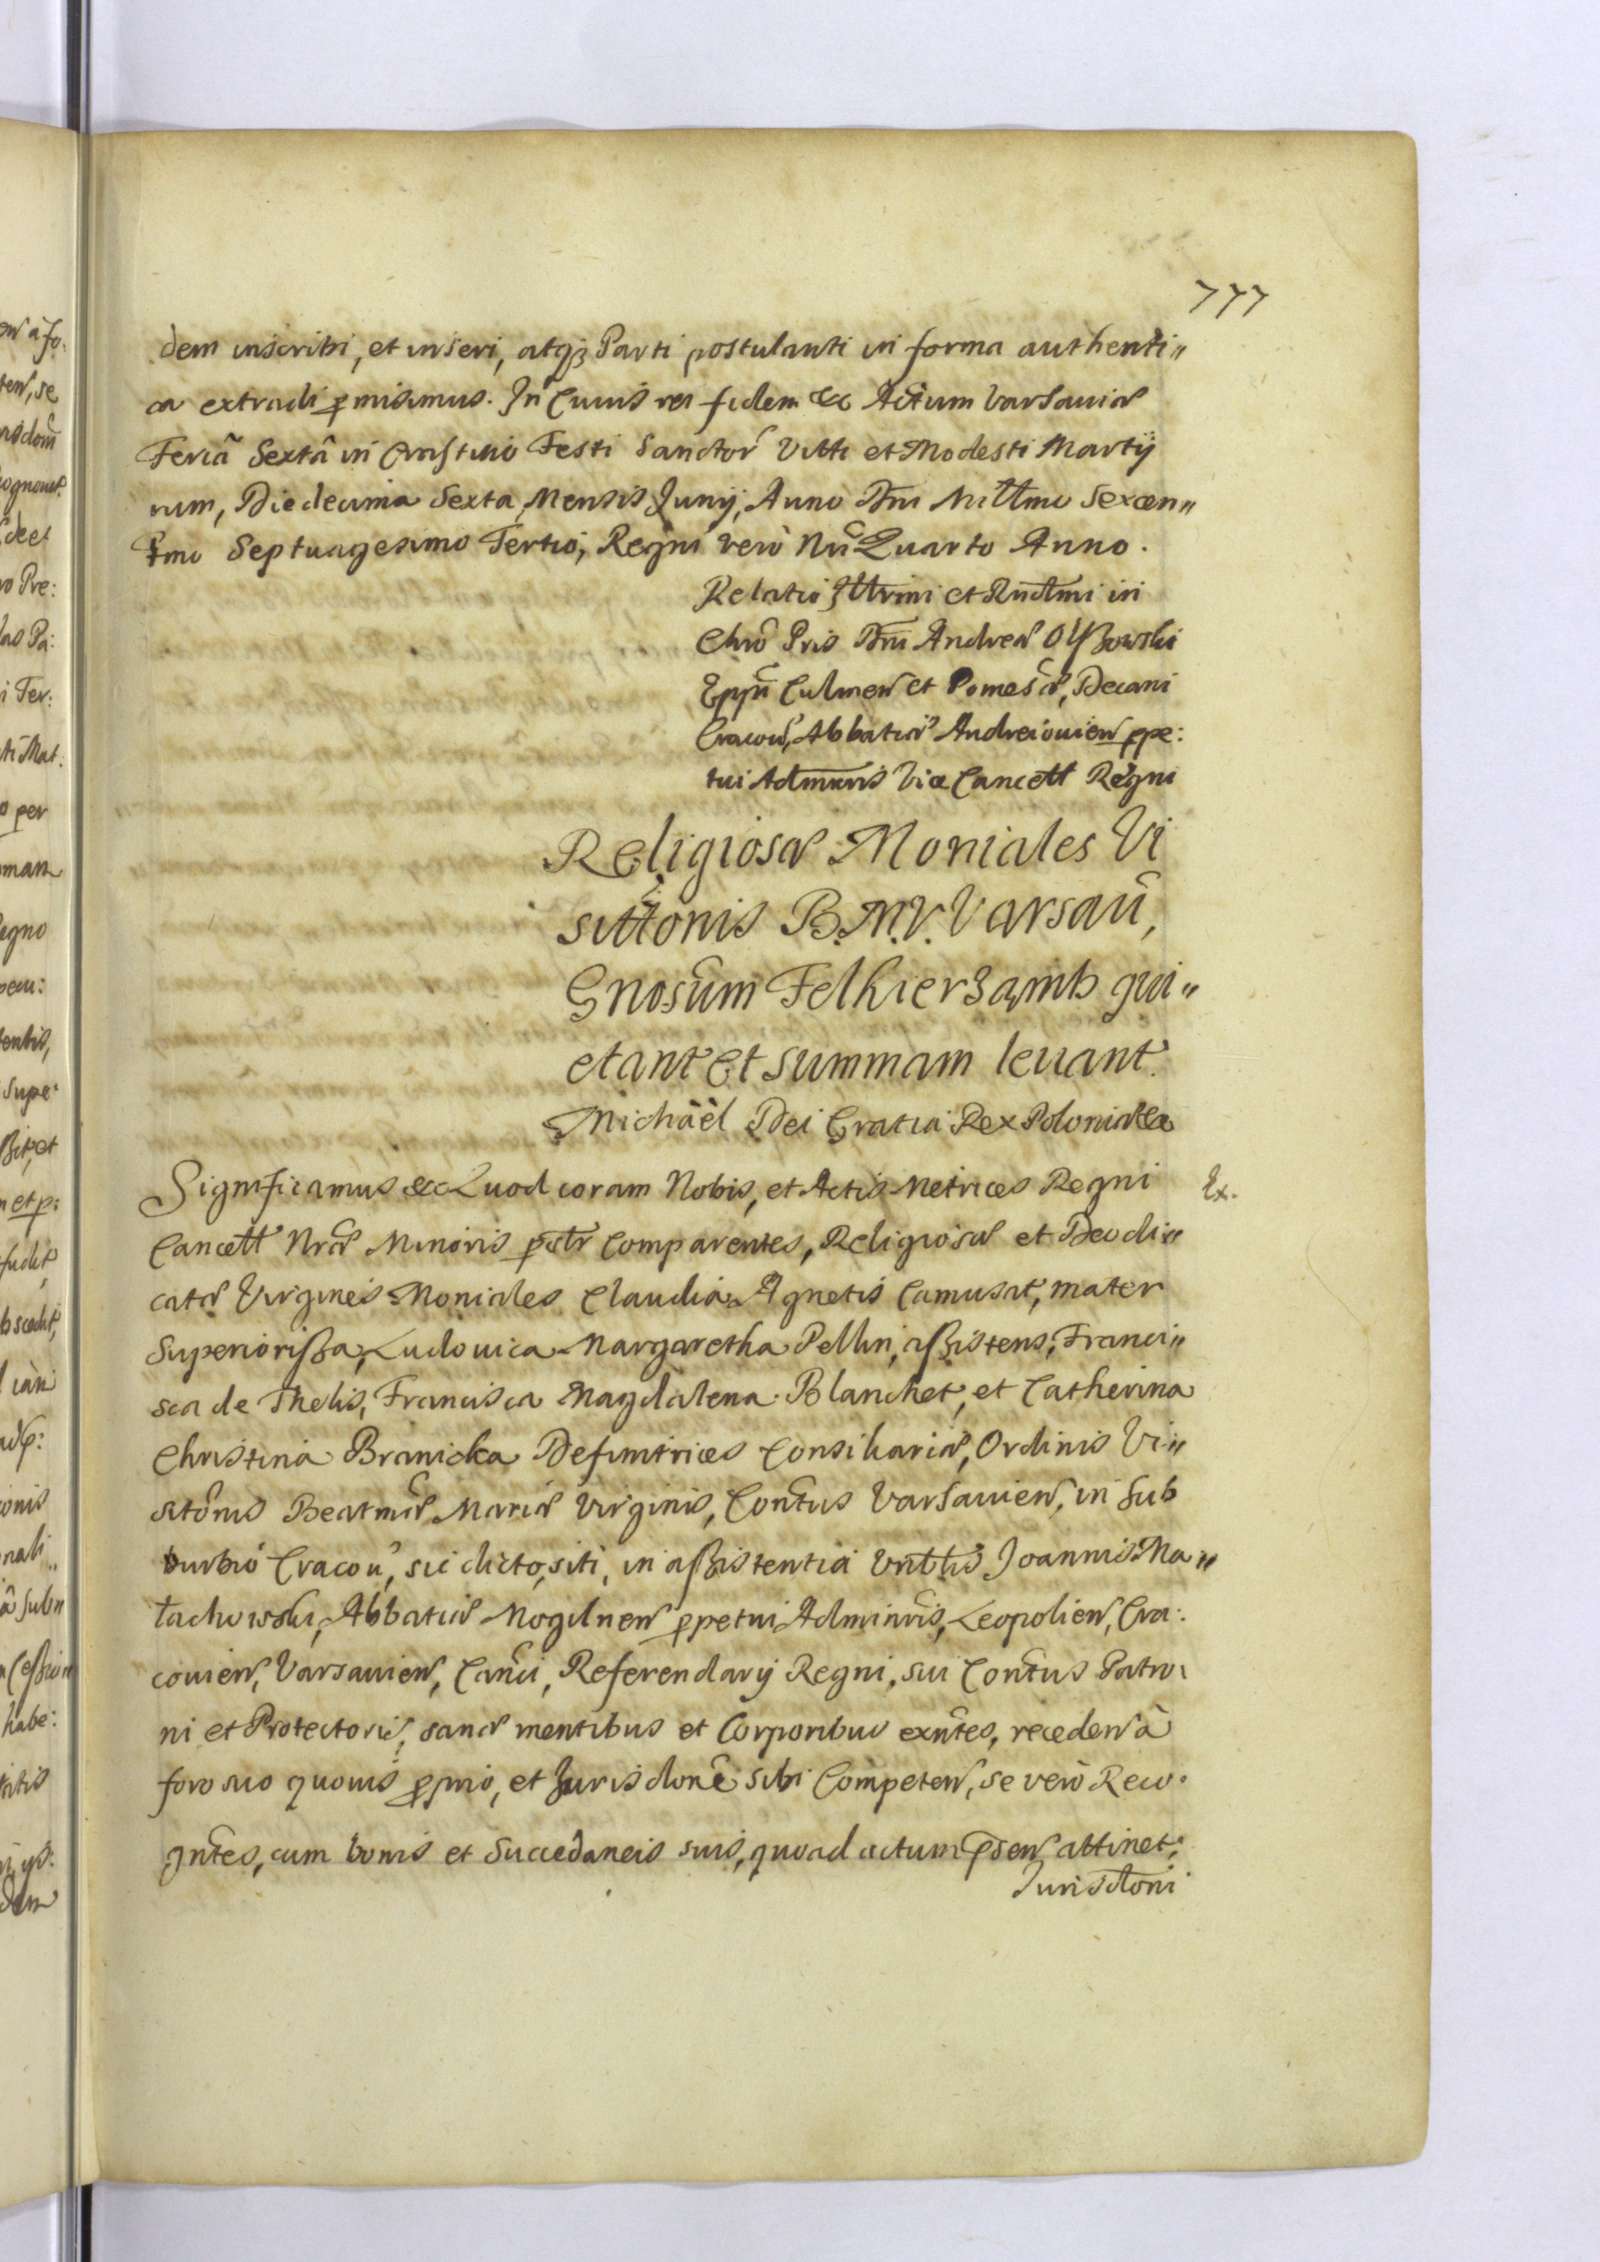 777
dem inscribi, et inseri, atq3 Parti postulanti in forma authenti〃
ca extradi pmisimus. In Cuius rei fidem &c Actum Varsauiæ
Feriâ Sextâ in Crastino Festi Sanctor Vitti et Modesti Marty
rum, Die decima Sexta, Mensis Junij, Anno Dni Millmo Sexcen〃
tmo Septuagesimo Tertio, Regni verò Nri Quarto Anno.
Relatio Illrmi et Rndmi in
Chro Pris Dni Andreæ Olszowski
Eppi Culmen et Pomesã, Decani
Cracou, Abbatiæ Andreiouien ppe:
tui Admnris Vice Cancell Regni
Religiosæ Moniales Vi
sittonis B.M.V. Varsau,
Gnosum Felkierzamb qui〃
etant et summam leuant.
Michäel Dei Gratia Rex Poloniæ &c
Significamus &c Quod coram Nobis, et Actis Metrices Regni
Ex.
Cancell Nræ Minoris pstr Comparentes, Religiosæ et Deo di〃
catæ Virgines Moniales Claudia Agnetis Camusat, mater
Superiorissa, Ludouica Margaretha Pellin, assistens, Franci〃
sca de Thelis, Francisca Magdalena Blanchet, et Catherina
Christina Branicka Definitrices Consiliariæ, Ordinis Vi〃
sitonis Beatmæ Mariæ Virginis, Contus Varsauien, in Sub
burbio Cracou, sic dicto, siti, in assistentia Vnblis Joannis Ma〃
łachowski, Abbatiæ Mogilnen ppetui Adminris, Leopolien, Cra:
couien, Varsauien, Canci, Referendarij Regni, sui Contus Patro
ni et Protectoris, sanæ mentibus et Corporibus exntes, receden à
foro suo quouis pprio, et Jurisdone sibi Competen, se verò Reco.
gntes, cum bonis et Succedaneis suis, quoad actum psen attinet,
Jurisdtoni